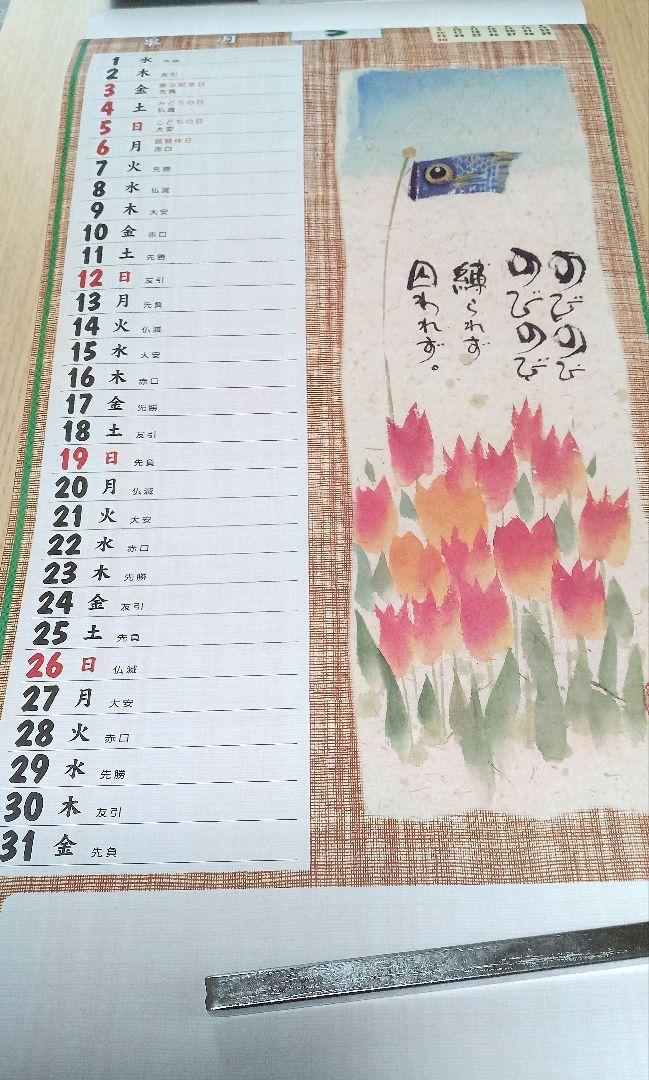 皐月
1 水 先勝
2 木 友引
3 金 憲法記念日 先負
4 土 みどりの日 仏滅
5 日 こどもの日 大安
6 月 振替休日 赤口
7 火 先勝
8 水 仏滅
9 木 大安
10 金 赤口
11 土 先勝
12 日 友引
13 月 先負
14 火 仏滅
15 水 大安
16 木 赤口
17 金 先勝
18 土 友引
19 日 先負
20 月 仏滅
21 火 大安
22 水 赤口
23 木 先勝
24 金 友引
25 土 先負
26 日 仏滅
27 月 大安
28 火 赤口
29 水 先勝
30 木 友引
31 金 先負
のびのび
のびのび
縛られず
囚われず。